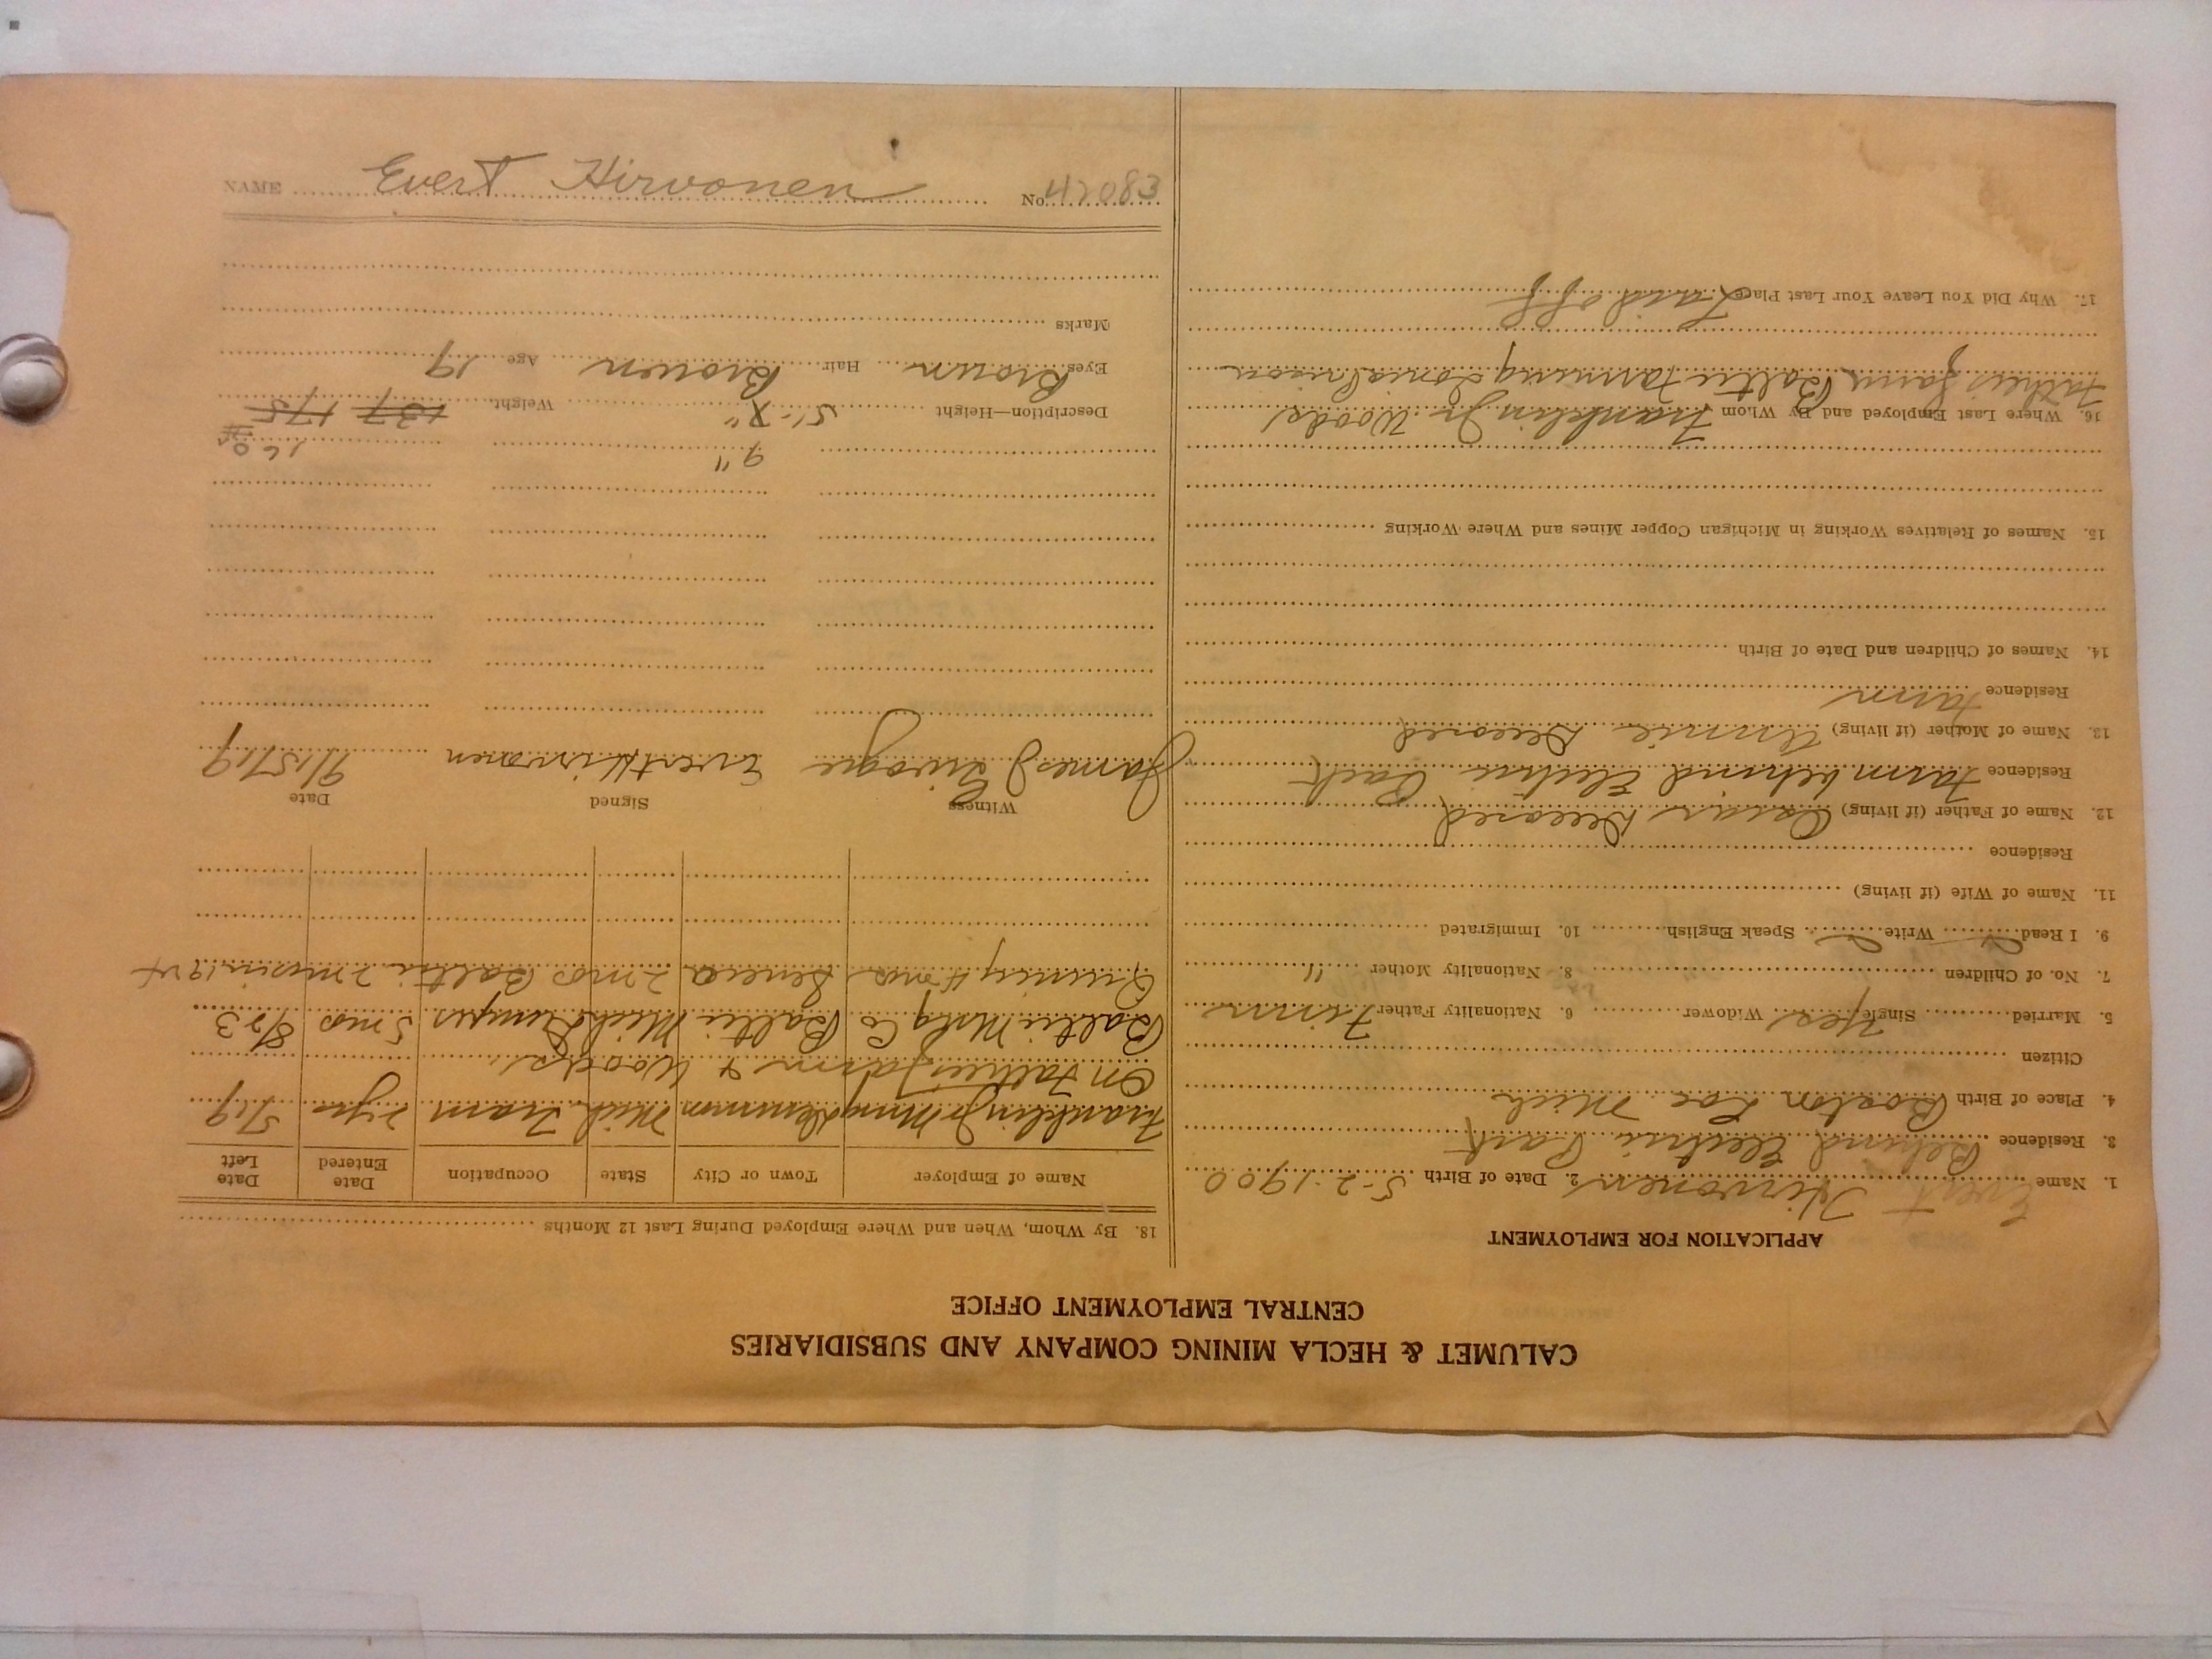 CALUMET & HECLA MINING COMPANY AND SUBSIDIARIES
CENTRAL EMPLOYMENT OFFICE
APPLICATION FOR EMPLOYMENT
1. Name Evert Hirvonen 2. Date of Birth 5-2-1900
3. Residence Behind Electric Park
4. Place of Birth Boston Loc Mich
Citizen
5. Married Single Yes Widower 6. Nationality Father Finn
7. No. of Children 8. Nationality Mother "
9. I Read Write Speak English 10. Immigrated
11. Name of Wife (if living)
Residence
12. Name of Father (if living) Oscar Deceased
Residence Farm behind Electric Park
13. Name of Mother (if living) Annie Deceased
Residence Farm
14. Names of Children and Date of Birth
15. Names of Relatives Working in Michigan Copper Mines and Where Working
16. Where Last Employed and By Whom Franklin Jr Woods
Fathers farm Baltic Tamming
17. Why Did You Leave Your Last Place Laid off
18. By Whom, When and Where Employed During Last 12 Months
Name of Employer Town or City State Occupation Date Entered Date Left
Franklin Jr Mng Demmon Mich Tram 2 yrs 5/19
On Fathers farm & Woods
Baltic Mng Co Baltic Mich 5 mos 8/23
Quincy 4 mos Seneca 2 mos Baltic 2 mos in 1924
Witness Signed Date
James J Evert Hirvonen 9/15/19
9" 160#
Description—Height 5'-8" Weight 137 175
Eyes Brown Hair Brown Age 19
Marks
NAME Evert Hirvonen No. 42083